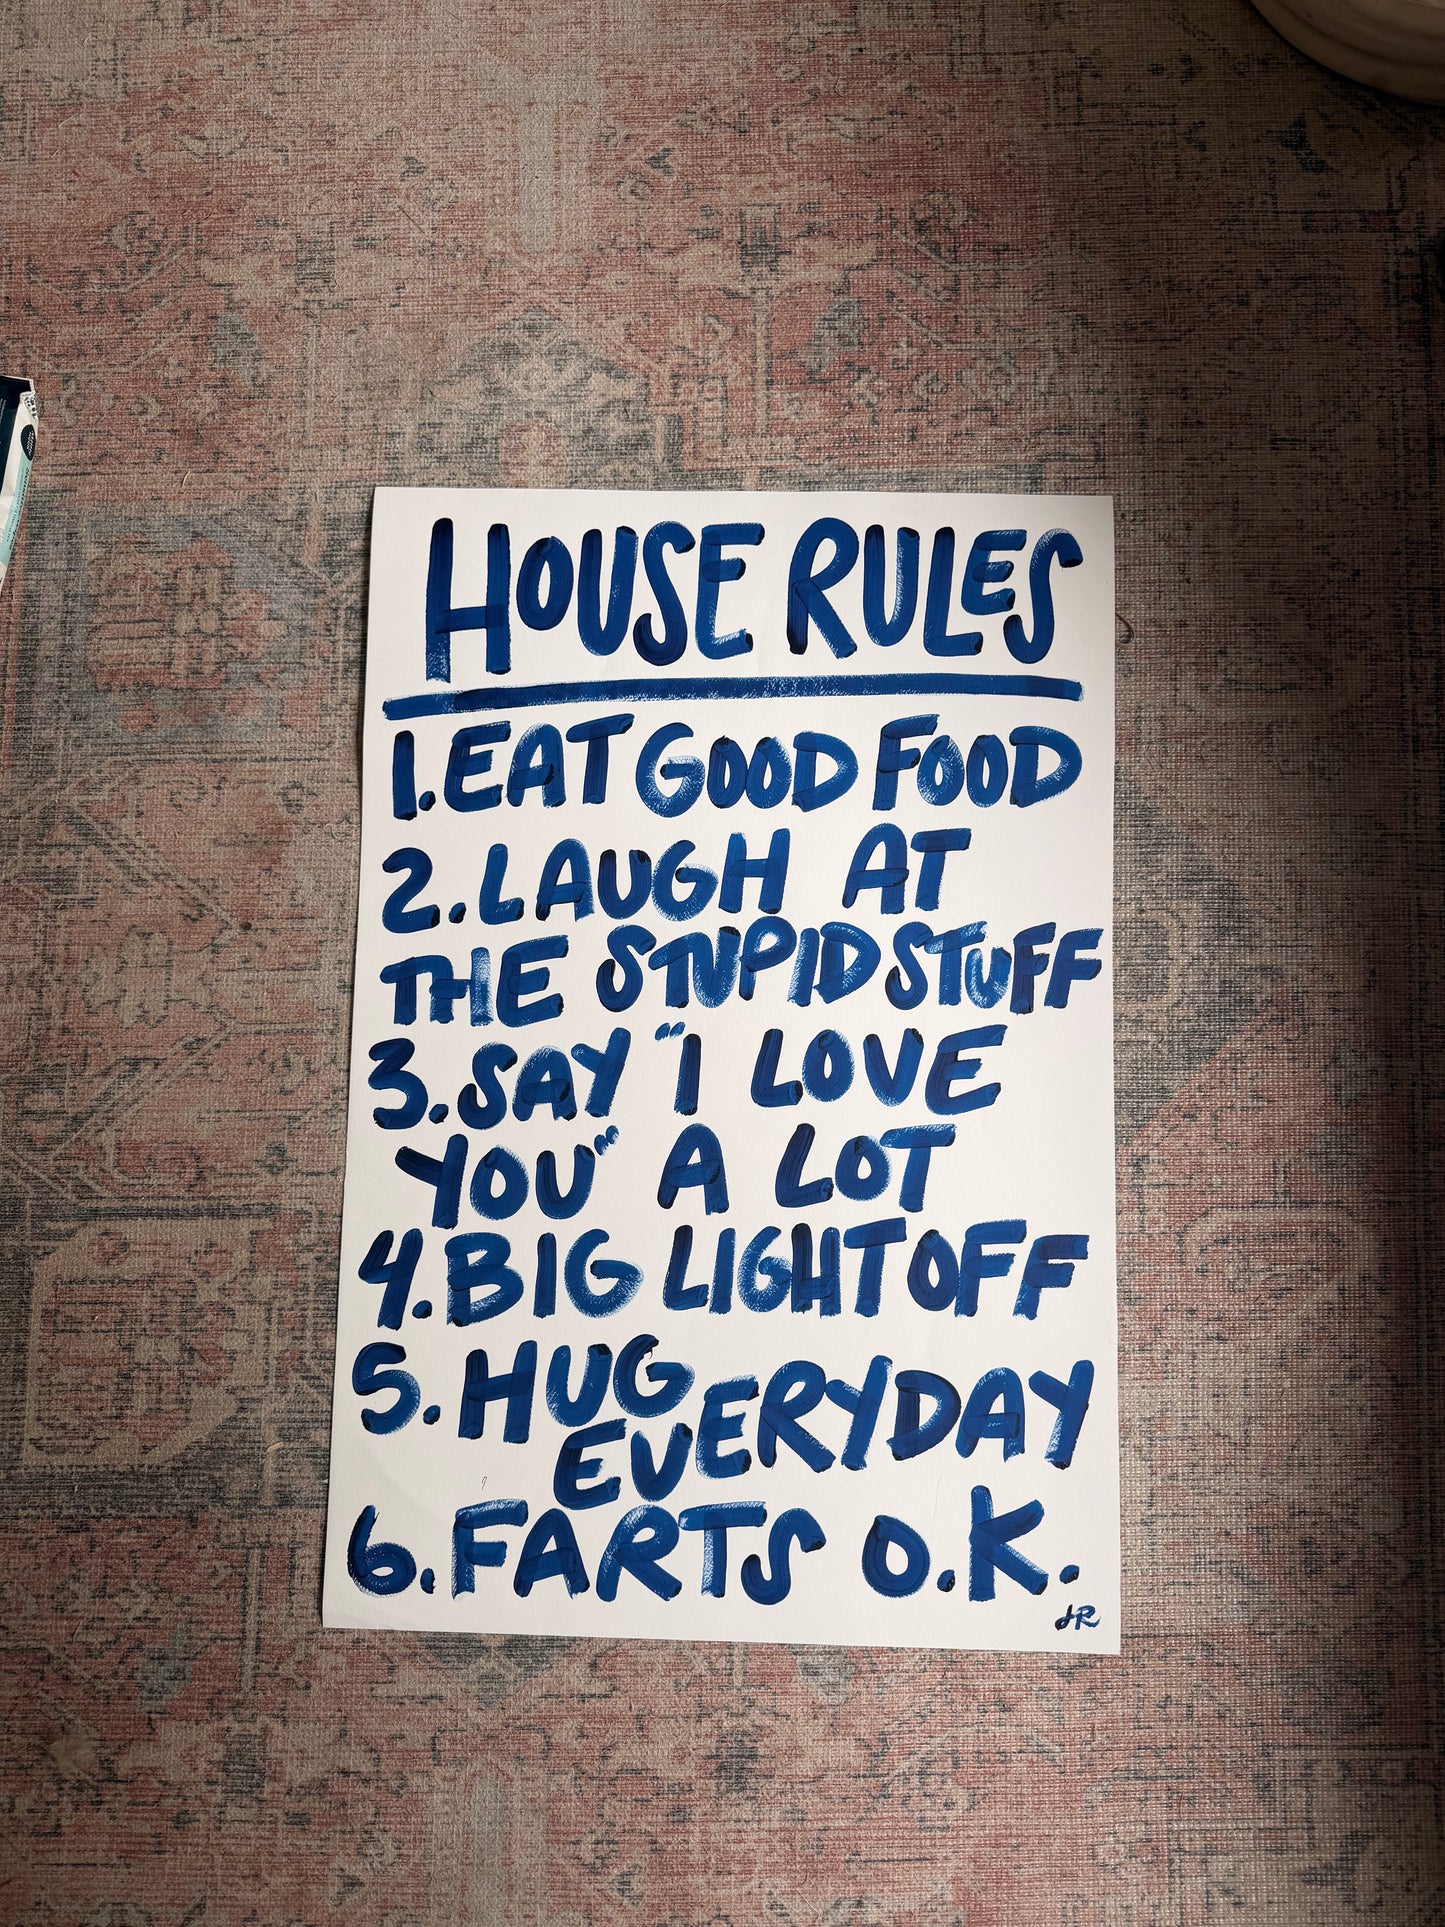 HOUSE RULES
1. EAT GOOD FOOD
2. LAUGH AT
THE STUPID STUFF
3. SAY "I LOVE
YOU" A LOT
4. BIG LIGHT OFF
5. HUG EVERYDAY
6. FARTS O.K.
JR